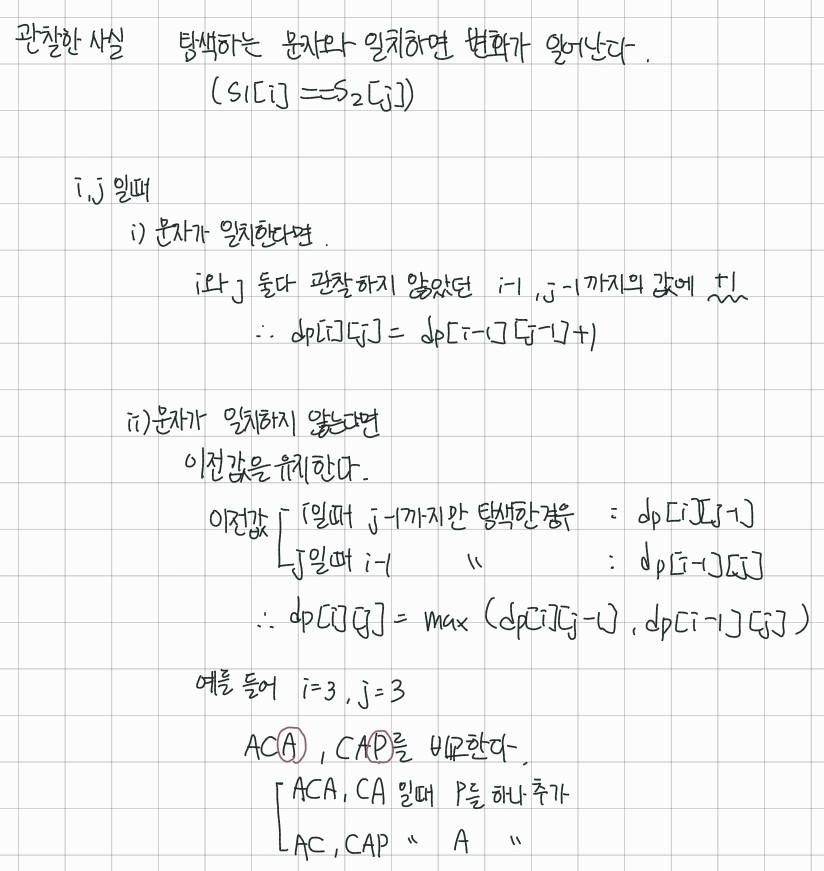 관찰한 사실 탐색하는 문자와 일치하면 변화가 일어난다.
(S1[i] == S2[j])
i,j 일때
i) 문자가 일치한다면.
i와 j 둘다 관찰하지 않았던 i-1, j-1까지의 값에 +1
∴ dp[i][j] = dp[i-1][j-1]+1
ii) 문자가 일치하지 않는다면
이전값을 유지한다.
이전값 i일때 j-1까지만 탐색한경우 : dp[i][j-1]
j일때 i-1 〃 : dp[i-1][j]
∴ dp[i][j] = max (dp[i][j-1], dp[i-1][j])
예를 들어 i=3, j=3
ACA, CAP를 비교한다.
ACA, CA 일때 P를 하나 추가
AC, CAP 〃 A 〃